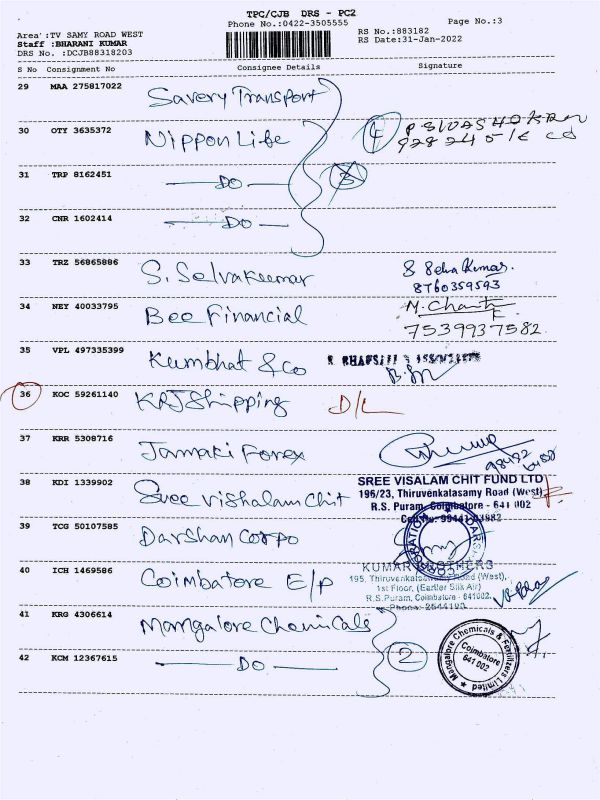 TPC/CJB DRS - PC2
Phone No.:0422-3505555
Page No.:3
Area :TV SAMY ROAD WEST
Staff :BHARANI KUMAR
DRS No. :DCJB88318203
RS No.:883182
RS Date:31-Jan-2022
S No Consignment No Consignee Details Signature
29 MAA 275817022 Savery Transport
30 OTY 3635372 Nippon Life 4
31 TRP 8162451 DO 3
32 CNR 1602414 DO
33 TRZ 56865886 S. Selvakumar S Selva Kumar.
8760359593
34 NEY 40033795 Bee Financial M. Chanti
7539937582
35 VPL 497335399 Kumbhat & Co
36 KOC 59261140 KRJ Shipping D/L
37 KRR 5308716 Janaki Forex
38 KDI 1339902 Sree Vishalam Chit
SREE VISALAM CHIT FUND LTD
196/23, Thiruvenkatasamy Road (West),
R.S. Puram, Coimbatore - 641 002
39 TCG 50107585 Darshan Corpo
40 ICH 1469586 Coimbatore E/P
KUMAR BROTHERS
195, Thiruvenkatasamy Road (West),
1st Floor, (Eartler Silk Air)
R.S.Puram, Coimbatore - 641002.
41 KRG 4306614 Mangalore Chemicals
42 KCM 12367615 DO 2
Mangalore Chemicals & Fertilizers Limited
Coimbatore
641 002